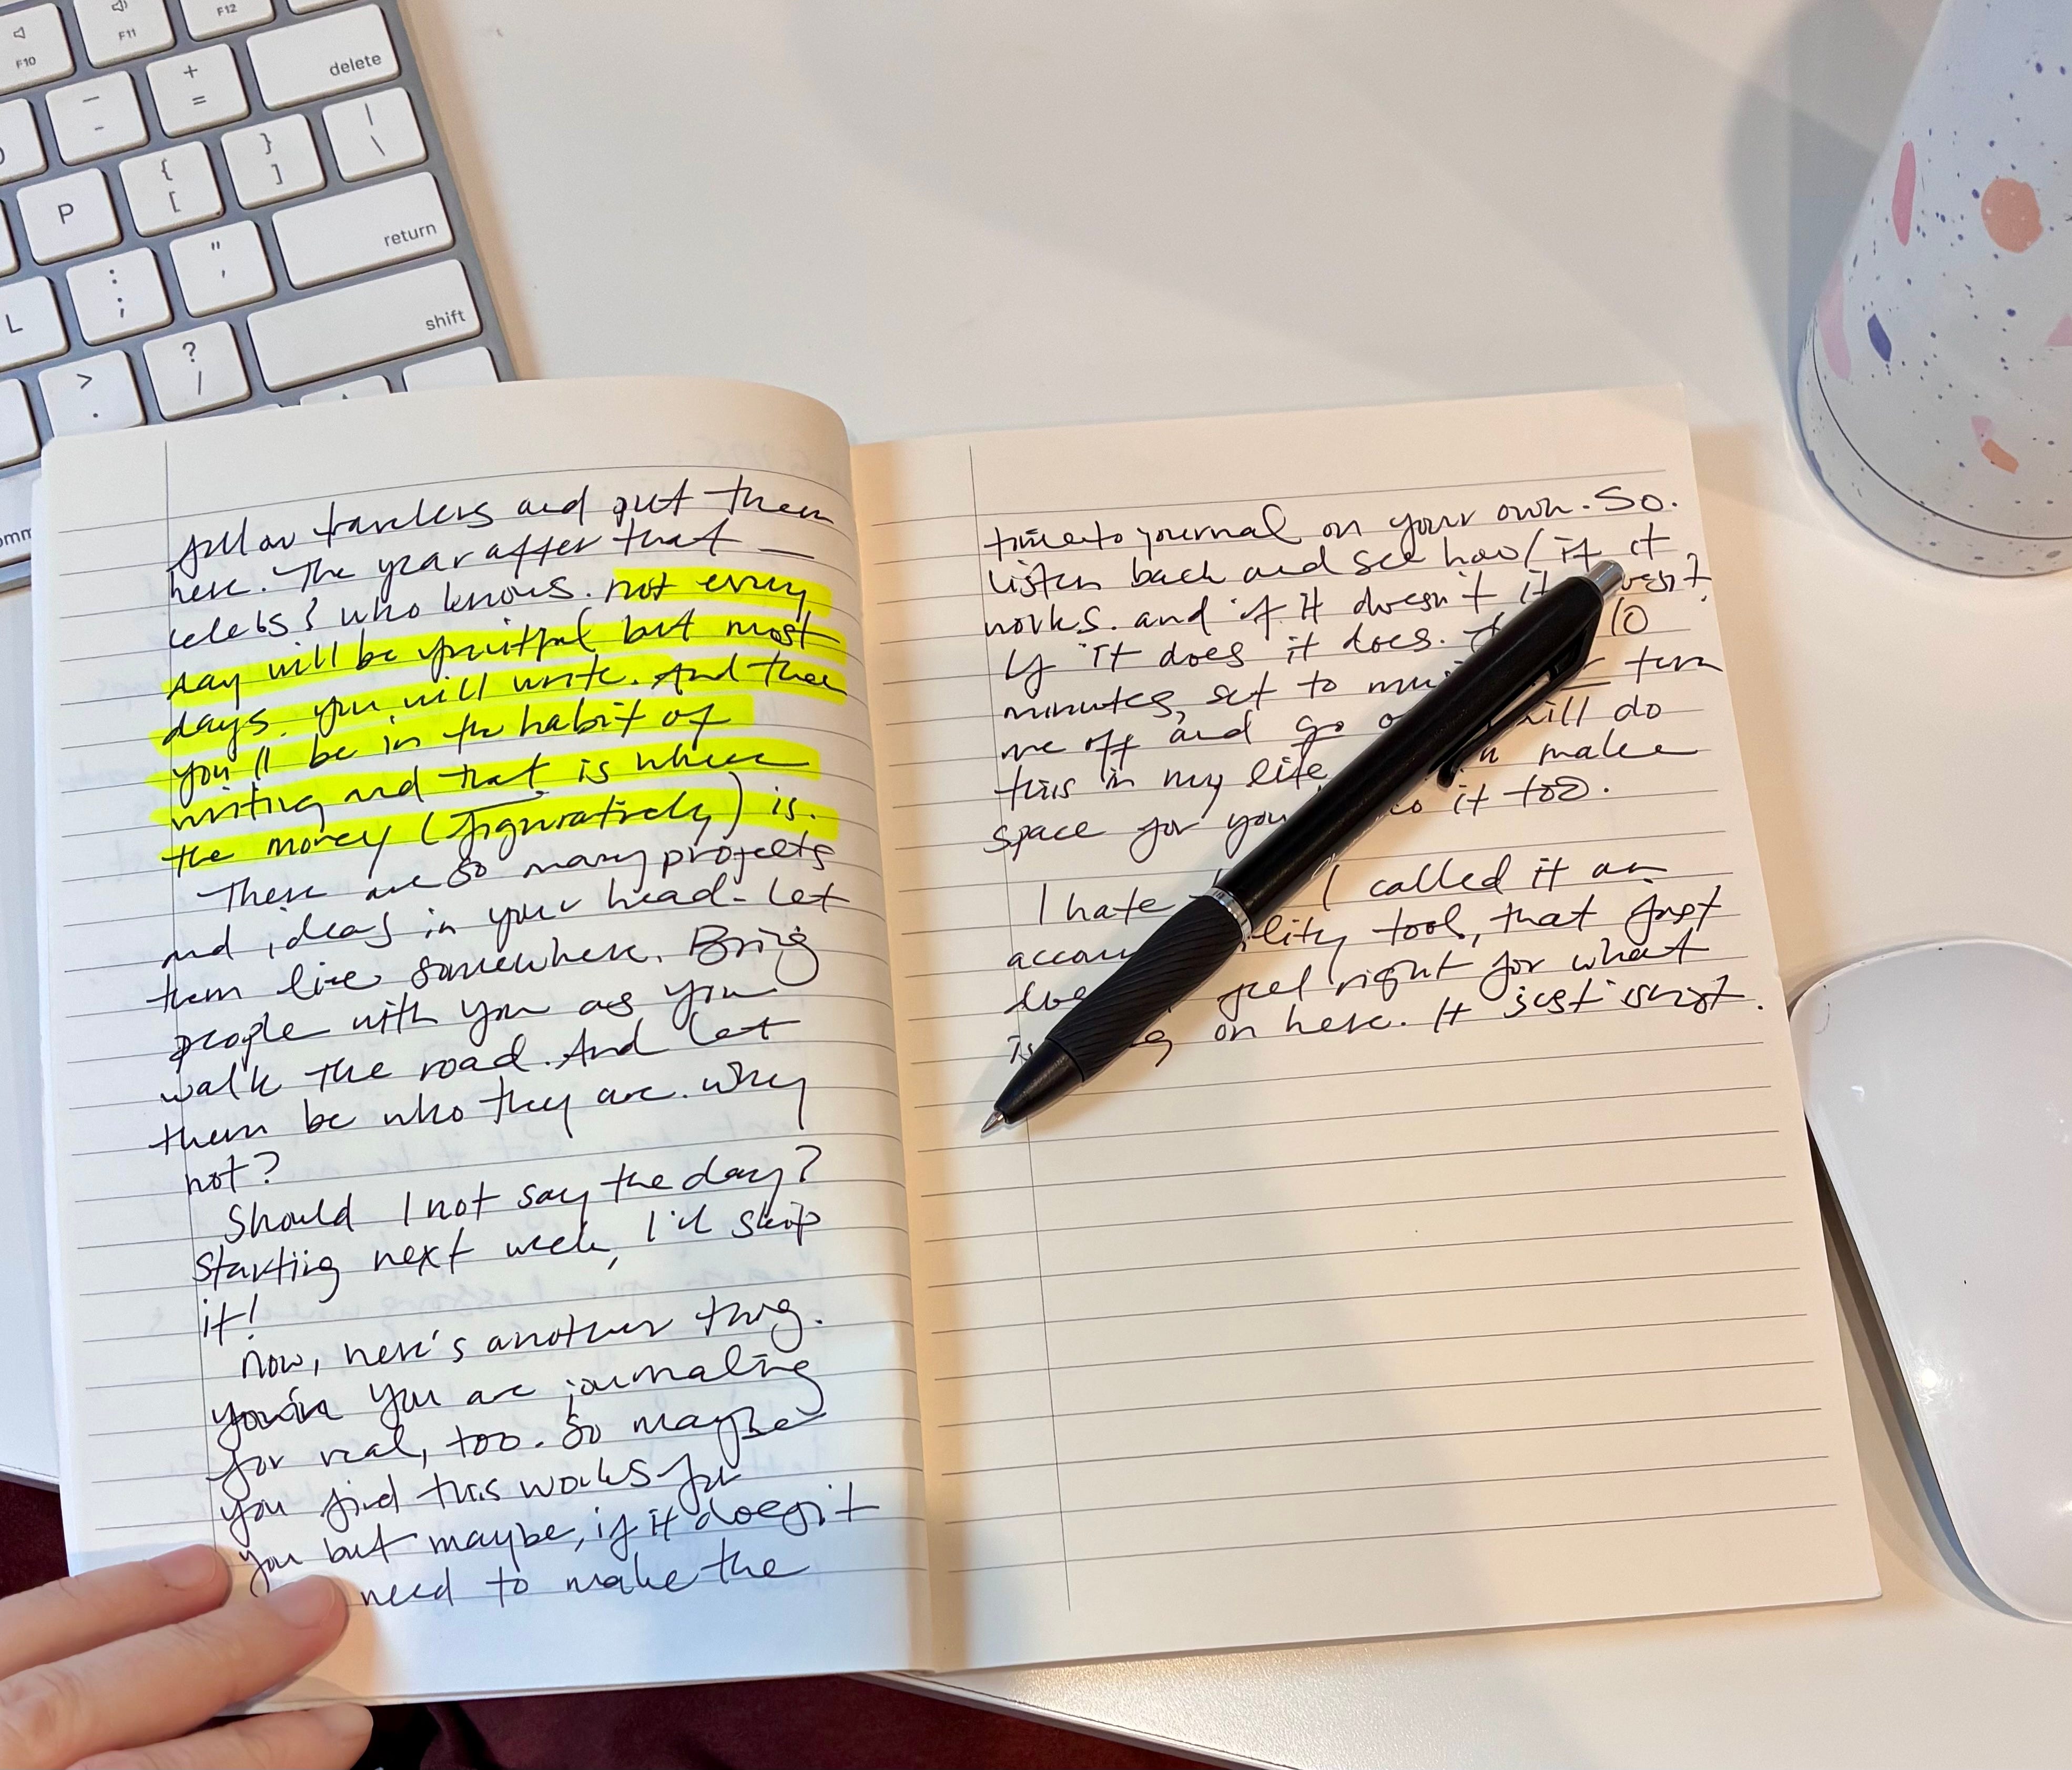 F10
F11
F12
delete
+
=
—
-
|
\
}
]
{
[
P
return
"
'
:
;
L
shift
?
/
>
.
fellow travelers and put them
here. The year after that —
celebs? who knows. not every
day will be fruitful but most
days you will write. And then
you'll be in the habit of
writing and that is where
the money (figuratively) is.
There are so many projects
and ideas in your head - let
them live somewhere. Bring
people with you as you
walk the road. And let
them be who they are. why
not?
Should I not say the day?
Starting next week, I'll skip
it!
Now, here's another thing.
You are journaling
for real, too. So maybe
you find this works for
you but maybe, if it doesn't
need to make the
time to journal on your own. So.
listen back and see how/if it
works. and if it doesn't it
If it does it does. 10
minutes, set to turn
me off and go will do
this in my life make
space for you it too.
I hate I called it an
tool, that just
feel right for what
on here. It just isn't.